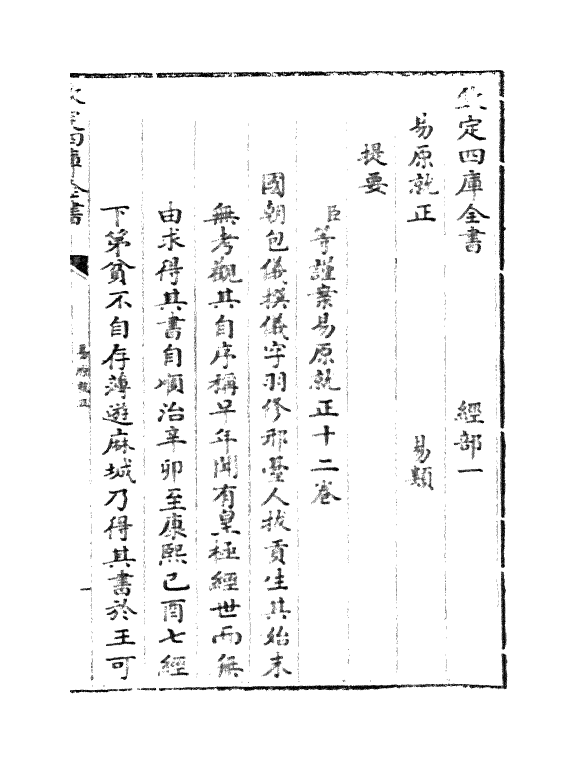 欽定四庫全書　經部一
易原就正　易類
提要
臣等謹案易原就正十二卷
國朝包儀撰儀字羽修邢臺人拔貢生其始末
無考觀其自序稱早年聞有皇極經世而無
由求得其書自順治辛卯至康熙己酉七經
下第貧不自存薄遊麻城乃得其書於王可
欽定四庫全書
易原就正
一